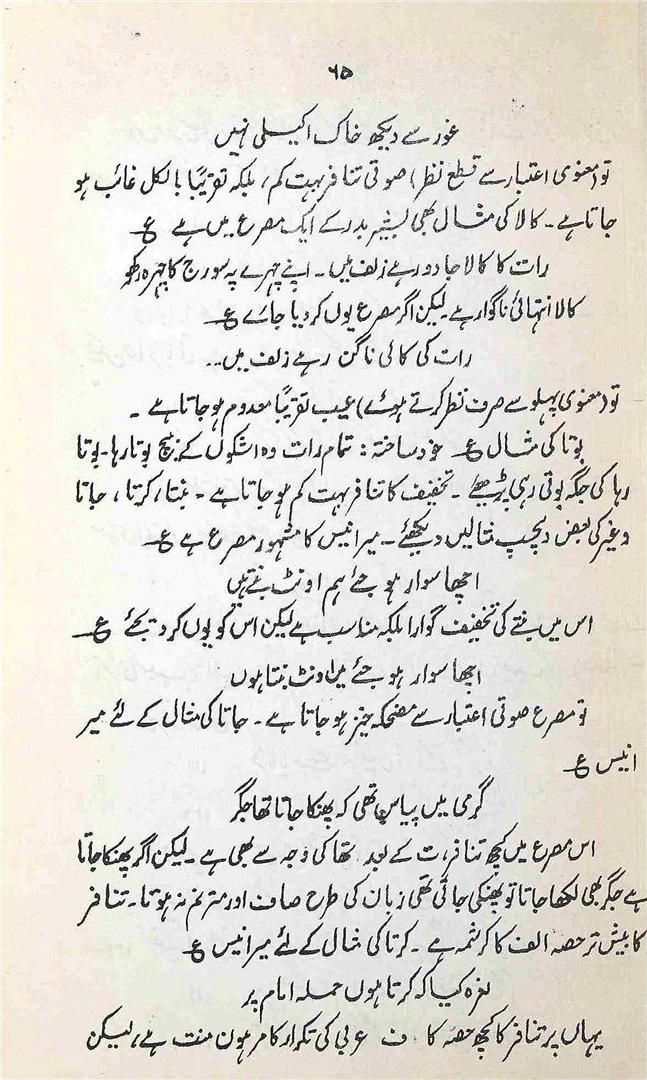 ۶۵
غور سے دیکھ خاک اکیلی نہیں
تو (معنوی اعتبار سے قطع نظر) صوتی تنافر بہت کم، بلکہ تقریباً بالکل غائب ہو
جاتا ہے۔ کالا کی مثال بھی بشیر بدر کے ایک مصرع میں ہے ؏
رات کا کالا جادو رہے زلف میں۔ اپنے چہرے پہ سورج کا چہرہ رکھو
کالا انتہائی ناگوار ہے۔ لیکن اگر مصرع یوں کر دیا جائے ؏
رات کی کالی ناگن رہے زلف میں۔۔
تو (معنوی پہلو سے صرف نظر کرتے ہوئے) عیب تقریباً معدوم ہو جاتا ہے۔
بوتا کی مثال ؏ خود ساختہ: تمام رات وہ اشکوں کے بیج بوتا رہا۔ بوتا
رہا کی جگہ بوتی رہی پڑھیے۔ تخفیف کا تنافر بہت کم ہو جاتا ہے۔ بنتا، کرتا، جاتا
وغیرہ کی بعض دلچسپ مثالیں دیکھئے۔ میر انیس کا مشہور مصرع ہے ؏
اچھا سوار ہو جئے ہم اونٹ بنتے ہیں
اس میں بنتے کی تخفیف گوارا بلکہ مناسب ہے لیکن اس کو یوں کر دیجئے ؏
اچھا سوار ہو جئے میں اونٹ بنتا ہوں
تو مصرع صوتی اعتبار سے مضحکہ خیز ہو جاتا ہے۔ جاتا کی مثال کے لئے میر
انیس ؏
گرمی میں پیاس تھی کہ پھنکا جاتا تھا جگر
اس مصرع میں کچھ تنافر، ت کے بعد تھا کی وجہ سے بھی ہے۔ لیکن اگر پھنکا جاتا
ہے جگر بھی لکھا جاتا تو پھنکی جاتی تھی زبان کی طرح صاف اور مترنم نہ ہوتا۔ تنافر
کا بیش تر حصہ الف کا کرشمہ ہے۔ کرتا کی مثال کے لئے میر انیس ؏
نعرہ کیا کہ کرتا ہوں حملہ امام پر
یہاں پر تنافر کا کچھ حصہ کاف عربی کی تکرار کا مرہون منت ہے، لیکن